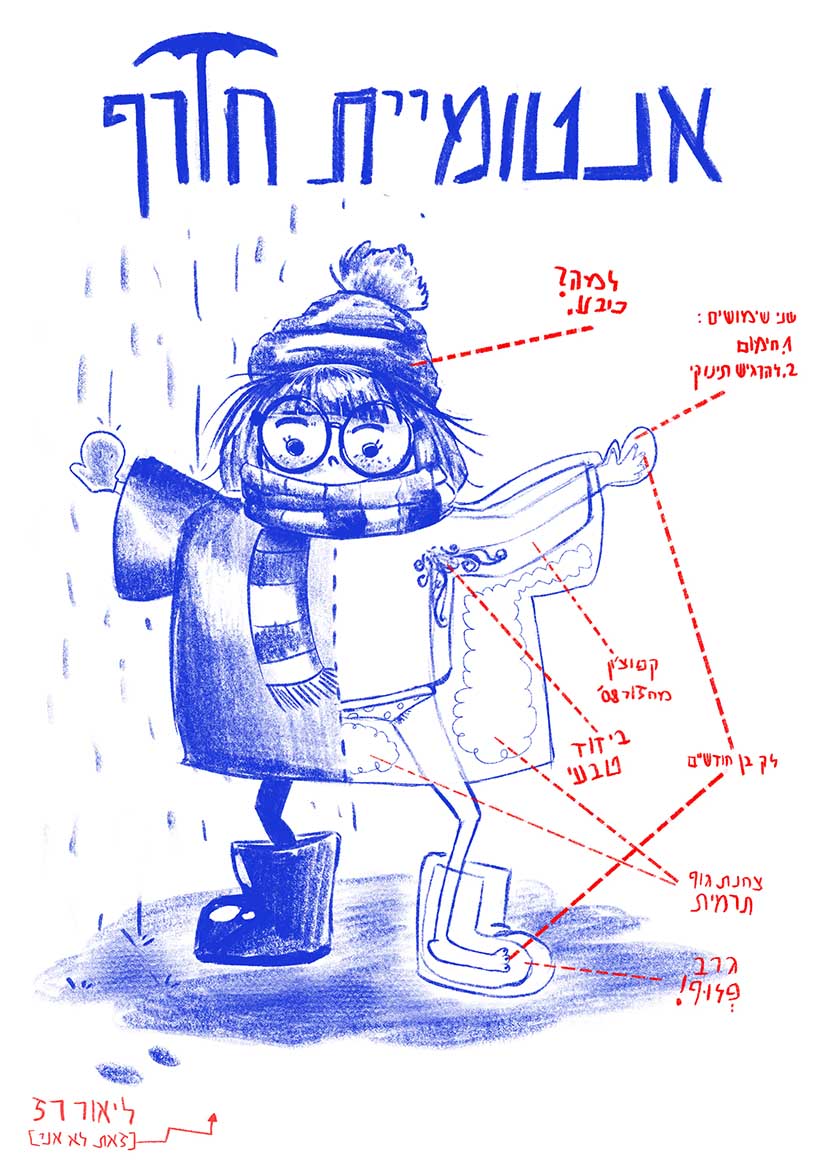 אנטומיית חורף
למה?
כובע.
שני שימושים :
1. חימום
2. להרגיש תינוקי
קפוצ'ון
מחזור 08'
בידוד
טבעי
לק בן חודשיים
צחנת גוף
תרמית
גרב
פְלוף!
ליאור רז
[זאת לא אני]